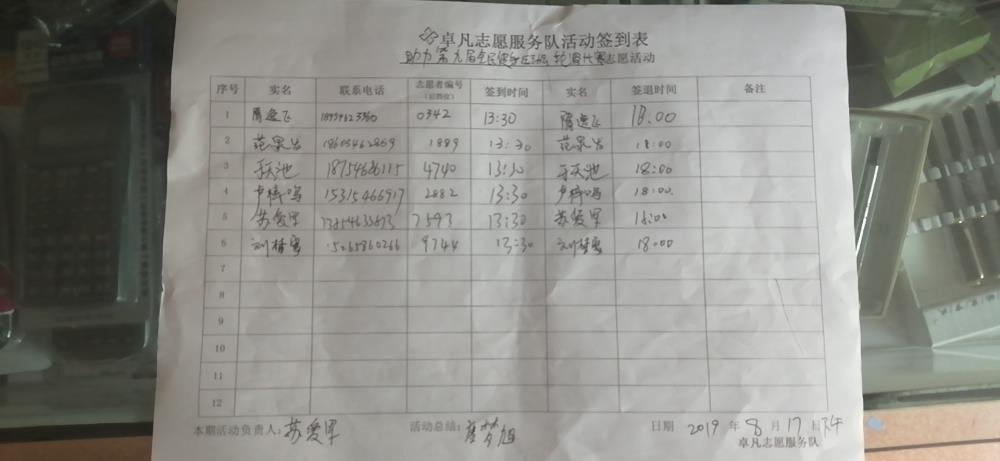 卓凡志愿服务队活动签到表
助力第九届全民健身运动会轮滑比赛志愿活动
序号 实名 联系电话 志愿者编号(后四位) 签到时间 实名 签退时间 备注
1 隋逸飞 0342 13:30 隋逸飞 18.00
2 范泉岩 18605462869 1889 13:30 范泉岩 18:00
3 18754636115 4740 13:30 18:00
4 15315466917 2882 13:30 18:00
5 苏爱军 7593 13:30 苏爱军 18:00
6 刘梦寒 15065860266 9744 13:30 刘梦寒 18:00
7
8
9
10
11
12
本期活动负责人:苏爱军 活动总结:崔梦旭 日期 2019 年 8 月 17 日下午
卓凡志愿服务队